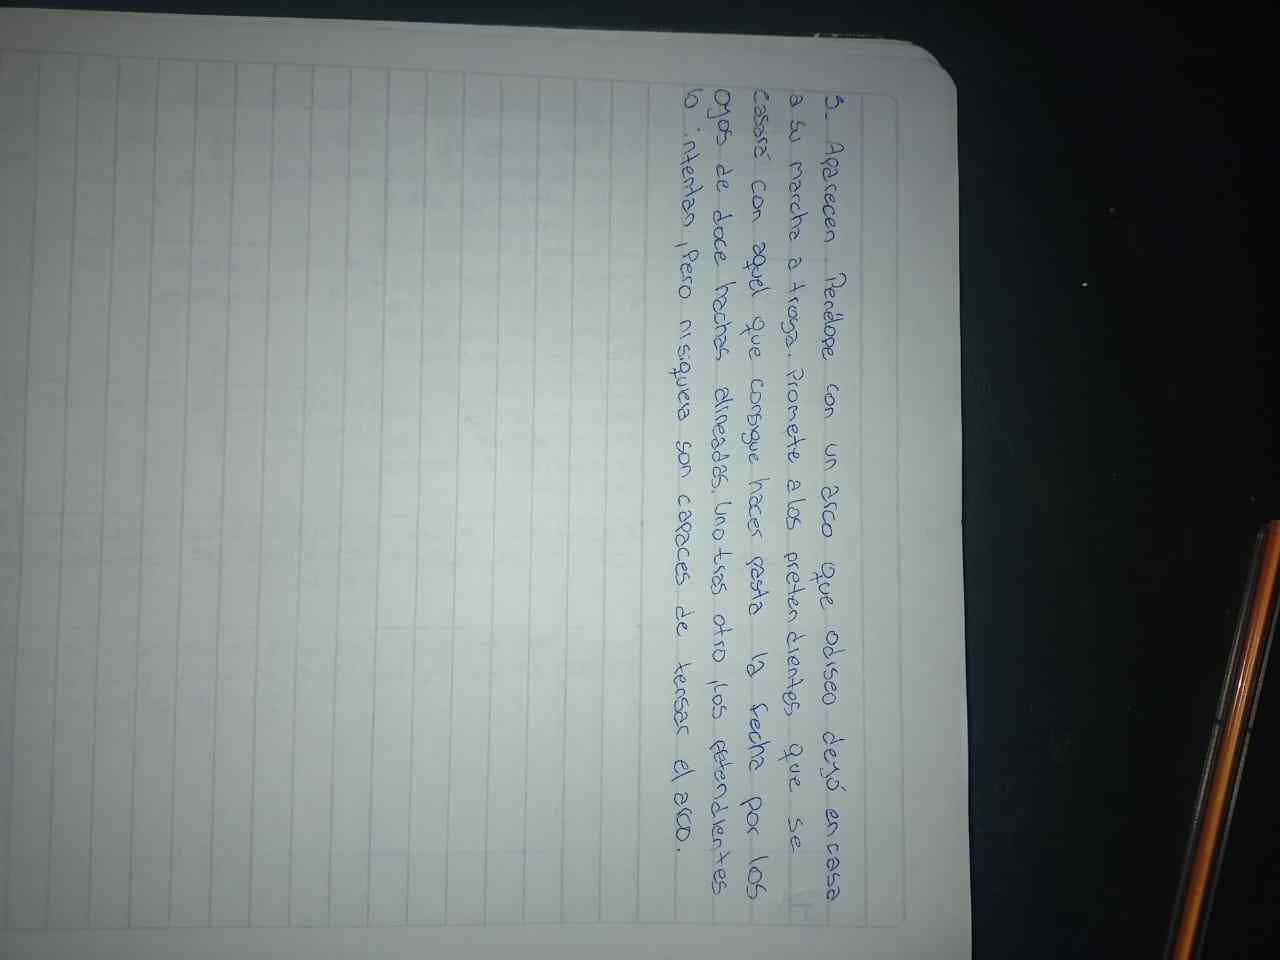 3- Aparecen Penélope con un arco que odiseo dejó en casa
a su marcha a troya. Promete a los pretendientes que se
casará con aquel que consigue hacer pasta la frecha por los
ojos de doce hachas alineadas. Uno tras otro, los pretendientes
lo intentan, pero nisiquiera son capaces de tensar el arco.